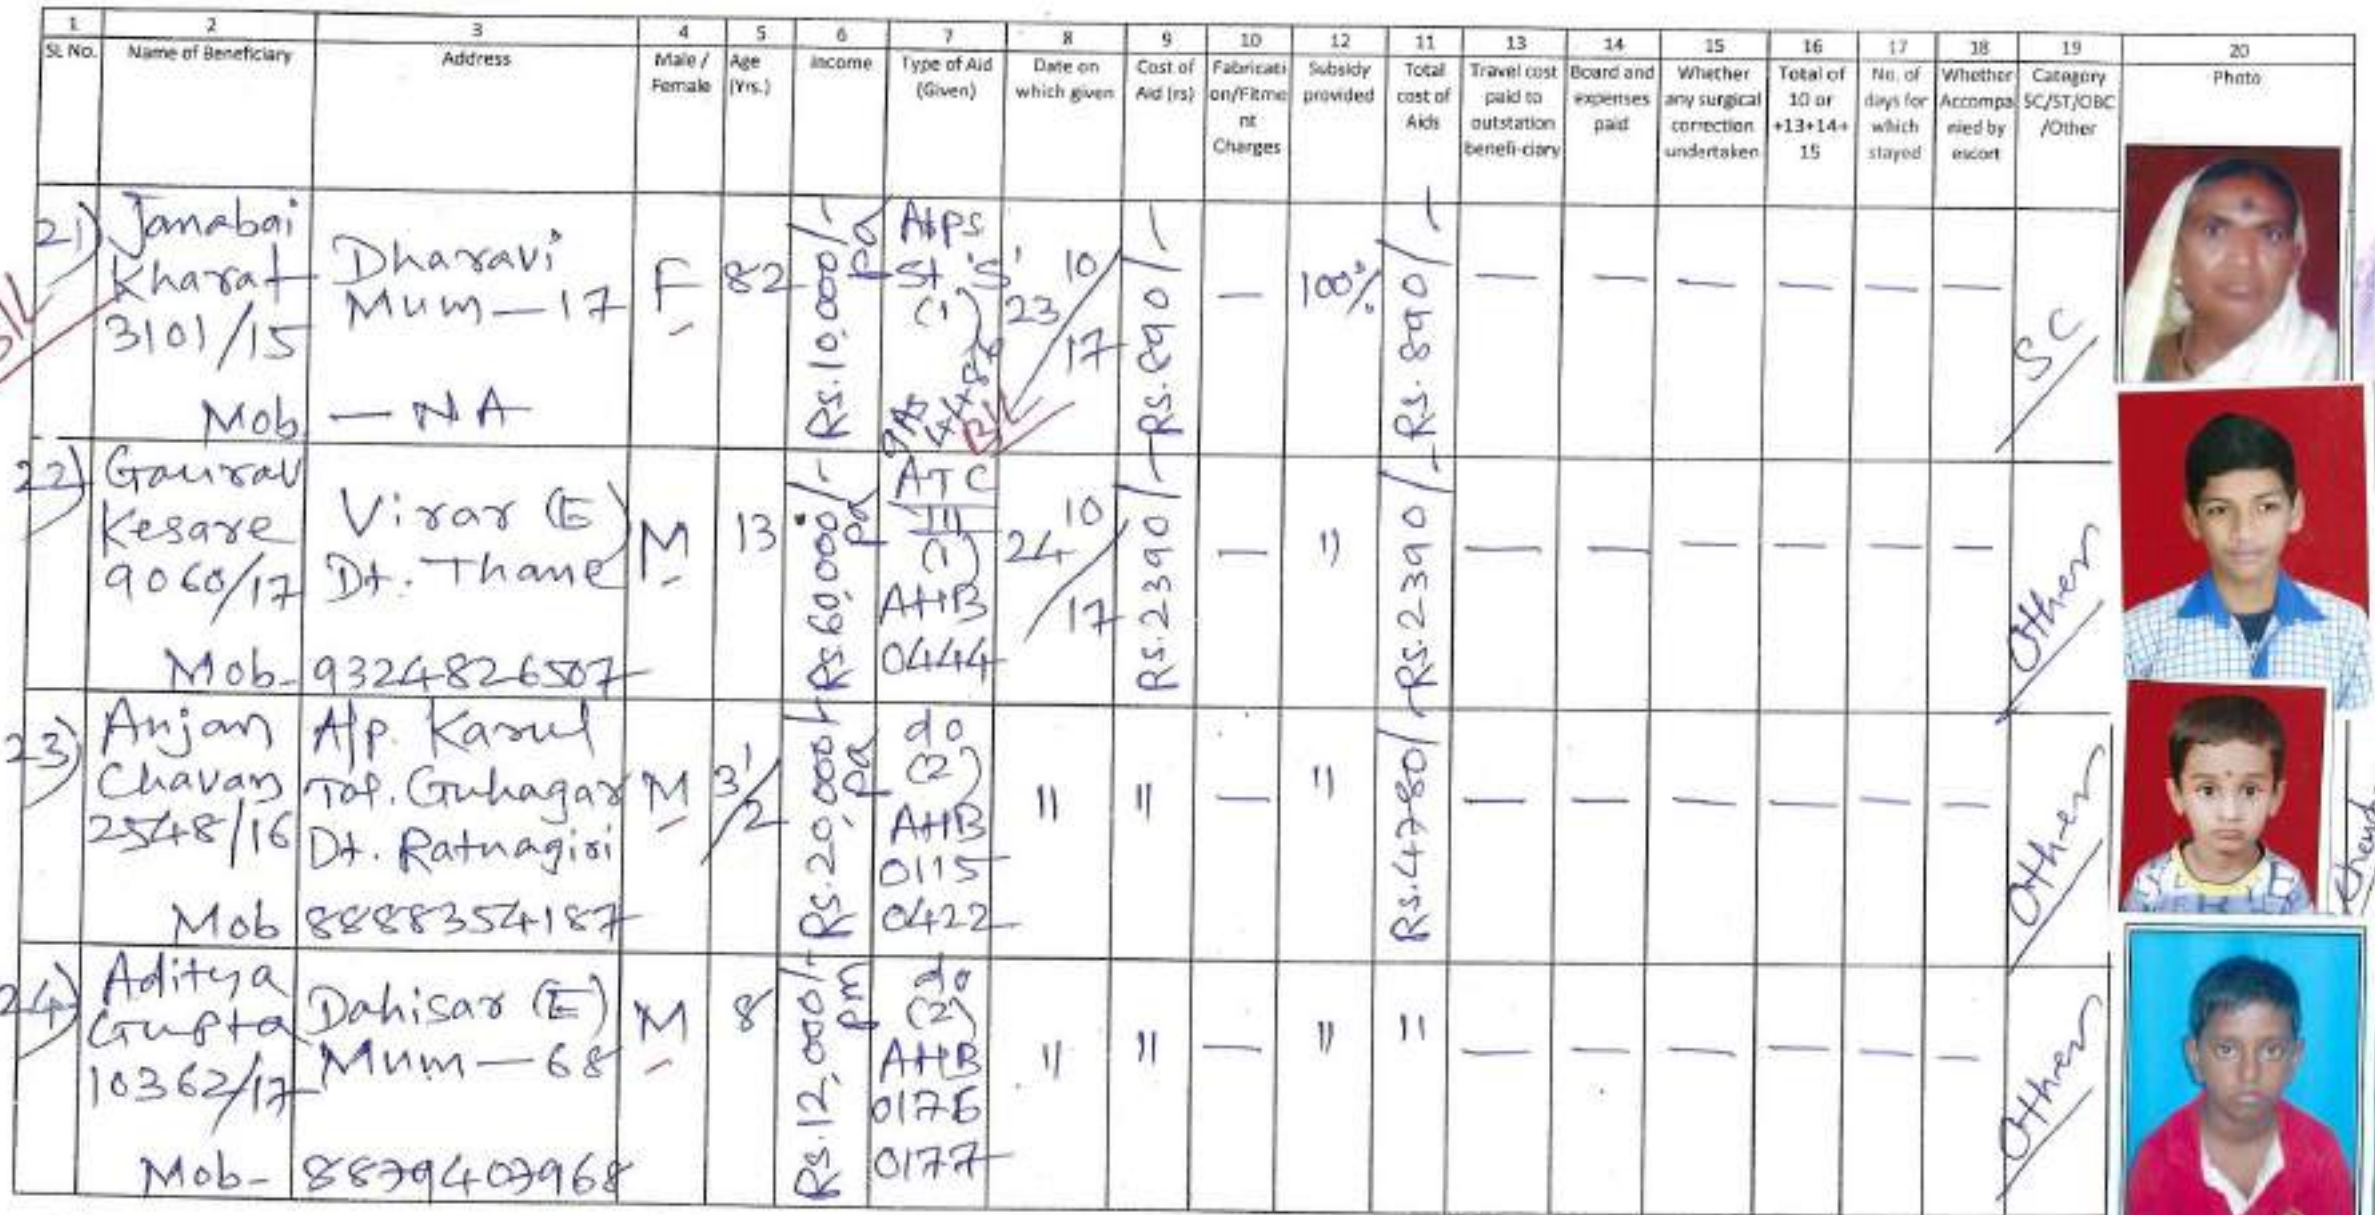 1 2 3 4 5 6 7 8 9 10 12 11 13 14 15 16 17 18 19 20
SL No.
Name of Beneficiary
Address
Male /
Female
Age
(Yrs.)
Income
Type of Aid
(Given)
Date on
which given
Cost of
Aid (rs)
Fabricati
on/Fitme
nt
Charges
Subsidy
provided
Total
cost of
Aids
Travel cost
paid to
outstation
benefi-ciary
Board and
expenses
paid
Whether
any surgical
correction
undertaken
Total of
10 or
+13+14+
15
No. of
days for
which
stayed
Whether
Accompa
nied by
escort
Category
SC/ST/OBC
/Other
Photo
21)
Janabai
Kharat
3101/15
Mob
Dharavi
Mum — 17
— NA
F
82
Rs. 10,000/-
pa
St 'S'
(1)
23/10/17
Rs. 890/-
—
100%
Rs. 890/-
— — — — — —
SC
22)
Gaurav
Kesare
9060/17
Mob-
Virar (E)
Dt. Thane
9324826507
M
13
Rs. 60,000/-
pa
ATC
III
(1)
AHB
0444
24/10/17
Rs. 2390/-
—
"
Rs. 2390/-
— — — — — —
Other
23)
Anjan
Chavan
2548/16
Mob
A/p. Karul
Tal. Guhagar
Dt. Ratnagiri
8888354187
M
3 1/2
Rs. 20,000/-
pa
do
(2)
AHB
0115
0422
"
"
—
"
Rs. 4780/-
— — — — — —
Other
24)
Aditya
Gupta
10362/17
Mob-
Dahisar (E)
Mum — 68
8879407968
M
8
Rs. 12,000/-
pm
do
(2)
AHB
0176
0177
"
"
—
"
"
— — — — — —
Other